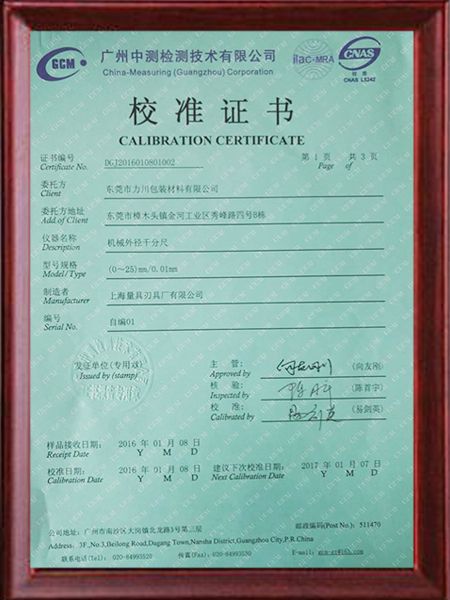 GCM
广州中测检测技术有限公司
China-Measuring (Guangzhou) Corporation
ilac-MRA
CNAS
校准
CNAS L5242
校准证书
CALIBRATION CERTIFICATE
证书编号 DGJ2016010801002 第 1 页 共 3 页
Certificate No. Page of
委托方 东莞市力川包装材料有限公司
Client
委托方地址 东莞市樟木头镇金河工业区秀峰路四号8栋
Add.of Client
仪器名称 机械外径千分尺
Description
型号规格 (0~25)mm/0.01mm
Model/Type
制造者 上海量具刃具厂有限公司
Manufacturer
编号 自编01
Serial No.
发证单位(专用章) 主管: (向友刚)
Issued by (stamp) Approved by
核验: (陈首宇)
Inspected by
校准: (易剑英)
Calibrated by
样品接收日期: 2016 年 01 月 08 日
Receipt Date Y M D
校准日期: 2016 年 01 月 08 日 建议下次校准日期: 2017 年 01 月 07 日
Calibration Date Y M D Next Calibration Date Y M D
公司地址: 广州市南沙区大岗镇北龙路3号第三层 邮政编码(Post No.): 511470
Address: 3F.,No.3,Beilong Road,Dagang Town,Nansha District,Guangzhou City,P.R.China
电话(Tel): 020-84993520 传真(Fax): 020-84993530 E-mail: